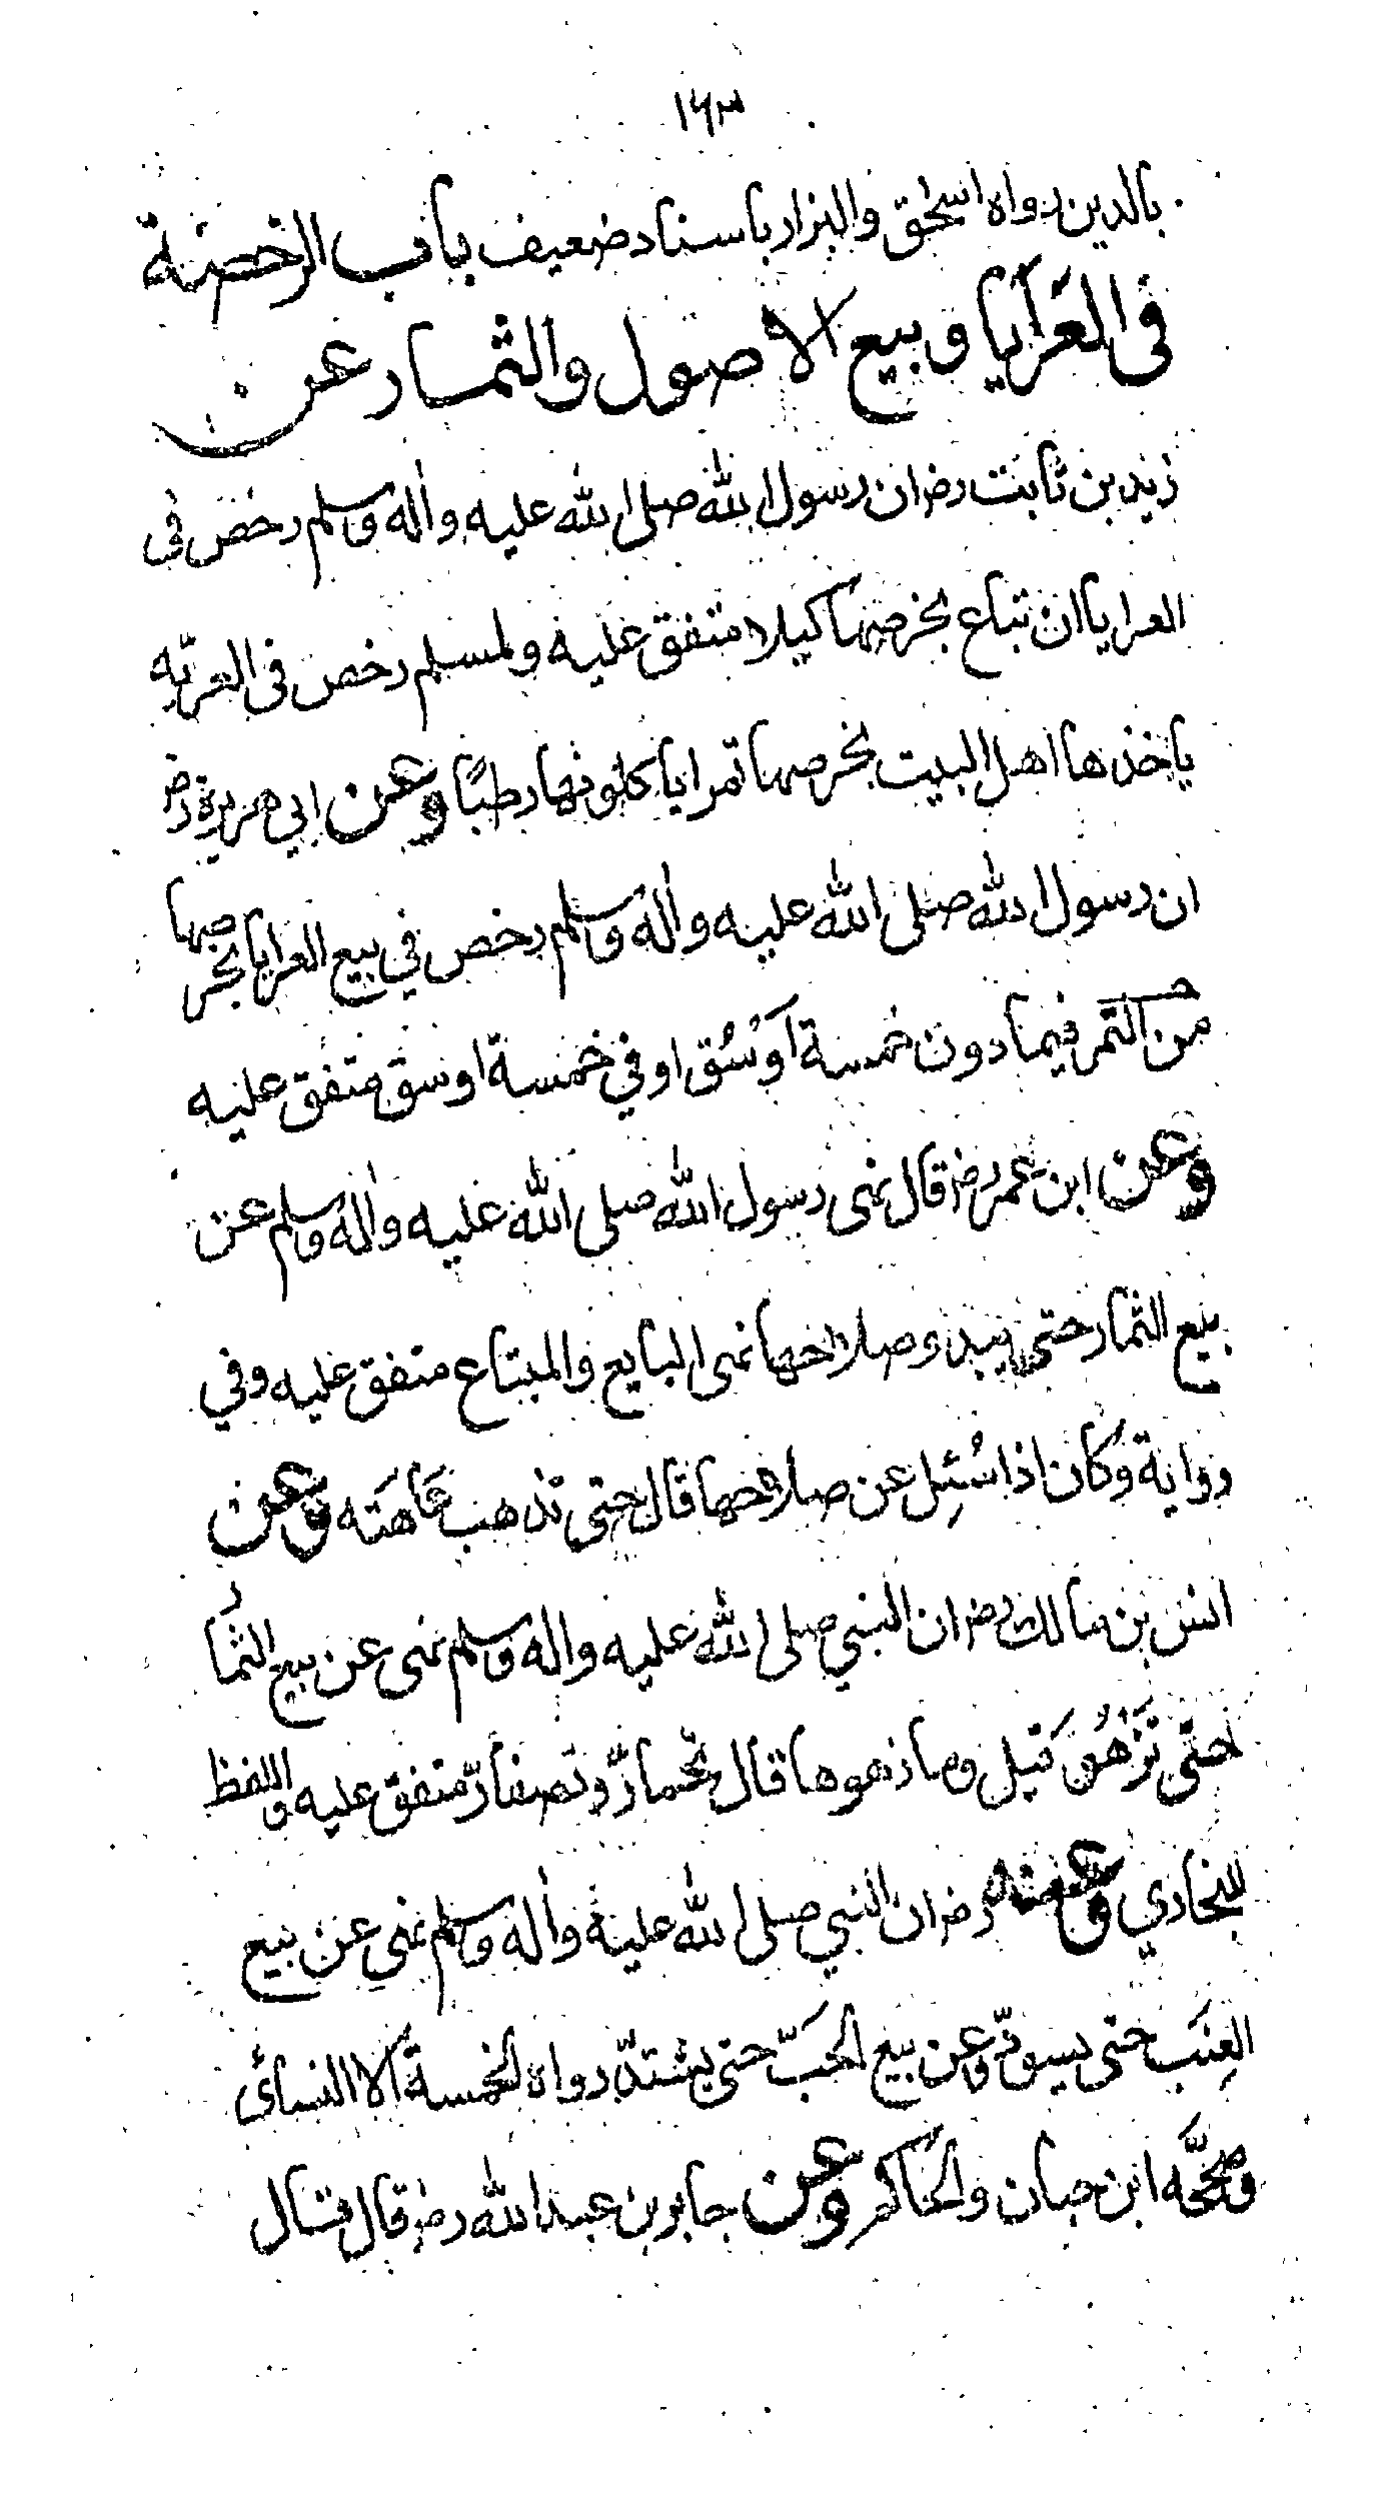 ١٦٣
بالدين رواه اسحق والبزار باسناد ضعيف باب الرخصة
فى العَرَايا وبيع الاصول والثمار عن
زيد بن ثابت رض ان رسول الله صلى الله عليه واله وسلم رخص فى
العرايا ان تباع بخرصها كيلا متفق عليه ولمسلم رخص فى العريّه
ياخذها اهل البيت بخرصها تمرا ياكلونها رطبًا وعن ابي هريرة رض
ان رسول الله صلى الله عليه واله وسلم رخص في بيع العرايا بخرصها
من التمر فيما دون خمسة اَوْسُق او في خمسة اوسق متفق عليه
وعن ابن عمر رض قال نهى رسول الله صلى الله عليه واله وسلم عن
بيع الثمار حتى يبدو صلاحها نهى البايع والمبتاع متفق عليه وفي
رواية وكان اذا سُئِل عن صلاحها قال حتى تذهب عَاهَته وعن
انس بن مالك رض ان النبي صلى الله عليه واله وسلم نهى عن بيع الثمار
حتّى تَزْهُوَ قيل وما زهوها قال تحمارّ وتصفارّ متفق عليه واللفظ
للبخاري وعنه رض ان النبي صلى الله عليه واله وسلم نهى عن بيع
العِنَب حتى يسودّ وعن بيع الحَبّ حتى يشتدّ رواه الخمسة الا النسائى
وصحَّحه ابن حبان والحاكم وعن جابر بن عبد الله رض قال قال